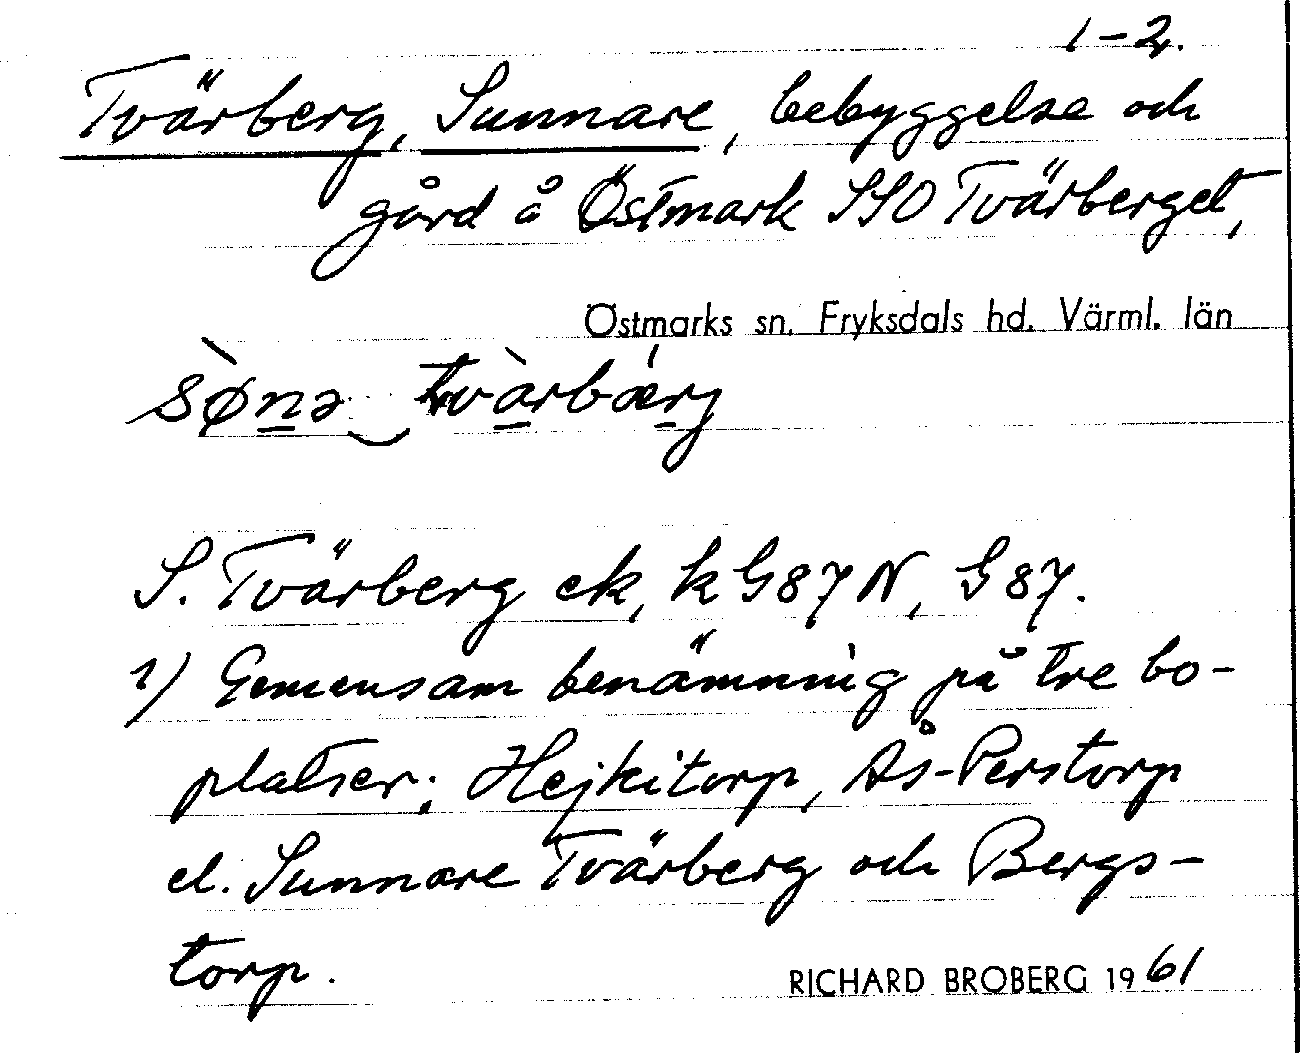 1–2.
Tvärberg, Sunnare, bebyggelse och
gård å Östmark SSO Tvärberget,
Östmarks sn. Fryksdals hd. Värml. län
sø̀nə‿tvàrbǽrj
S. Tvärberg ek, k G87N, G87.
1) Gemensam benämning på tre bo-
platser: Hejkitorp, Ås-Perstorp
el. Sunnare Tvärberg och Bergs-
torp.
RICHARD BROBERG 1961